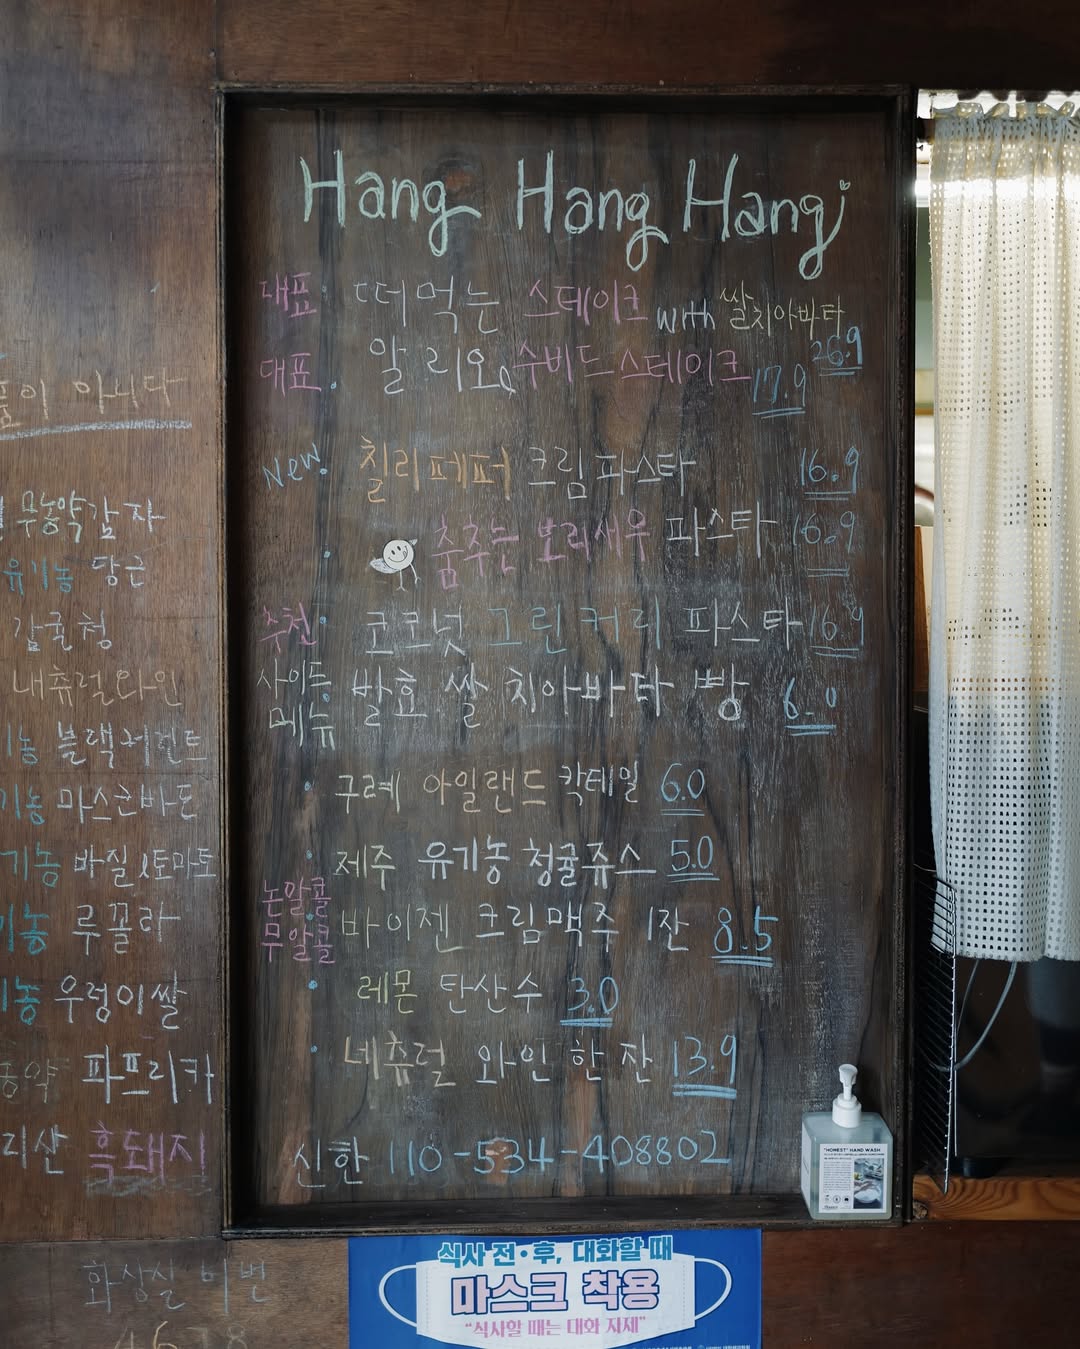 Hang Hang Hang
대표. 떠먹는 스테이크 with 쌀치아바타 26.9
대표. 알리오 수비드 스테이크 17.9
New. 칠리페퍼 크림 파스타 16.9
춤추는 보리새우 파스타 16.9
추천. 코코넛 그린 커리 파스타 16.9
사이드 메뉴 발효 쌀 치아바타 빵 6.0
구례 아일랜드 칵테일 6.0
제주 유기농 청귤쥬스 5.0
논알콜
무알콜 바이젠 크림맥주 1잔 8.5
레몬 탄산수 3.0
네츄럴 와인 한 잔 13.9
신한 110-534-408802
아니다
무농약감자
유기농 당근
감귤청
내츄럴와인
블랙커런트
마스코바도
바질 토마토
루꼴라
우렁이쌀
파프리카
흑돼지
화장실 비번
"HONEST" HAND WASH
식사 전·후, 대화할 때
마스크 착용
"식사할 때는 대화 자제"